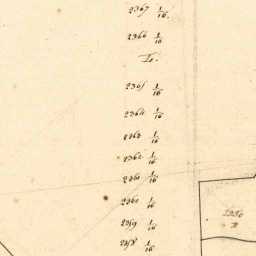 2367 1/16.
2366 1/16
2365 1/16
2364 1/16
2363 1/16
2362 1/16
2361 1/16
2360 1/16
2359 1/16
2358 1/16